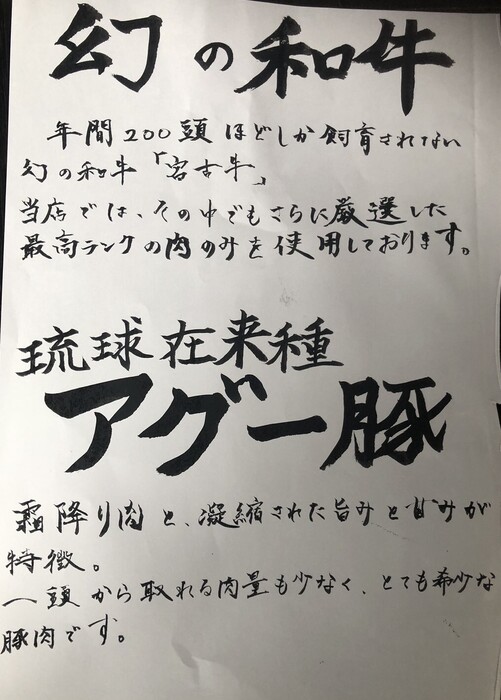 幻の和牛
年間200頭ほどしか飼育されない
幻の和牛「宮古牛」
当店では、その中でもさらに厳選した
最高ランクの肉のみを使用しております。
琉球在来種
アグー豚
霜降り肉と、凝縮された旨みと甘みが
特徴。
一頭から取れる肉量も少なく、とても希少な
豚肉です。